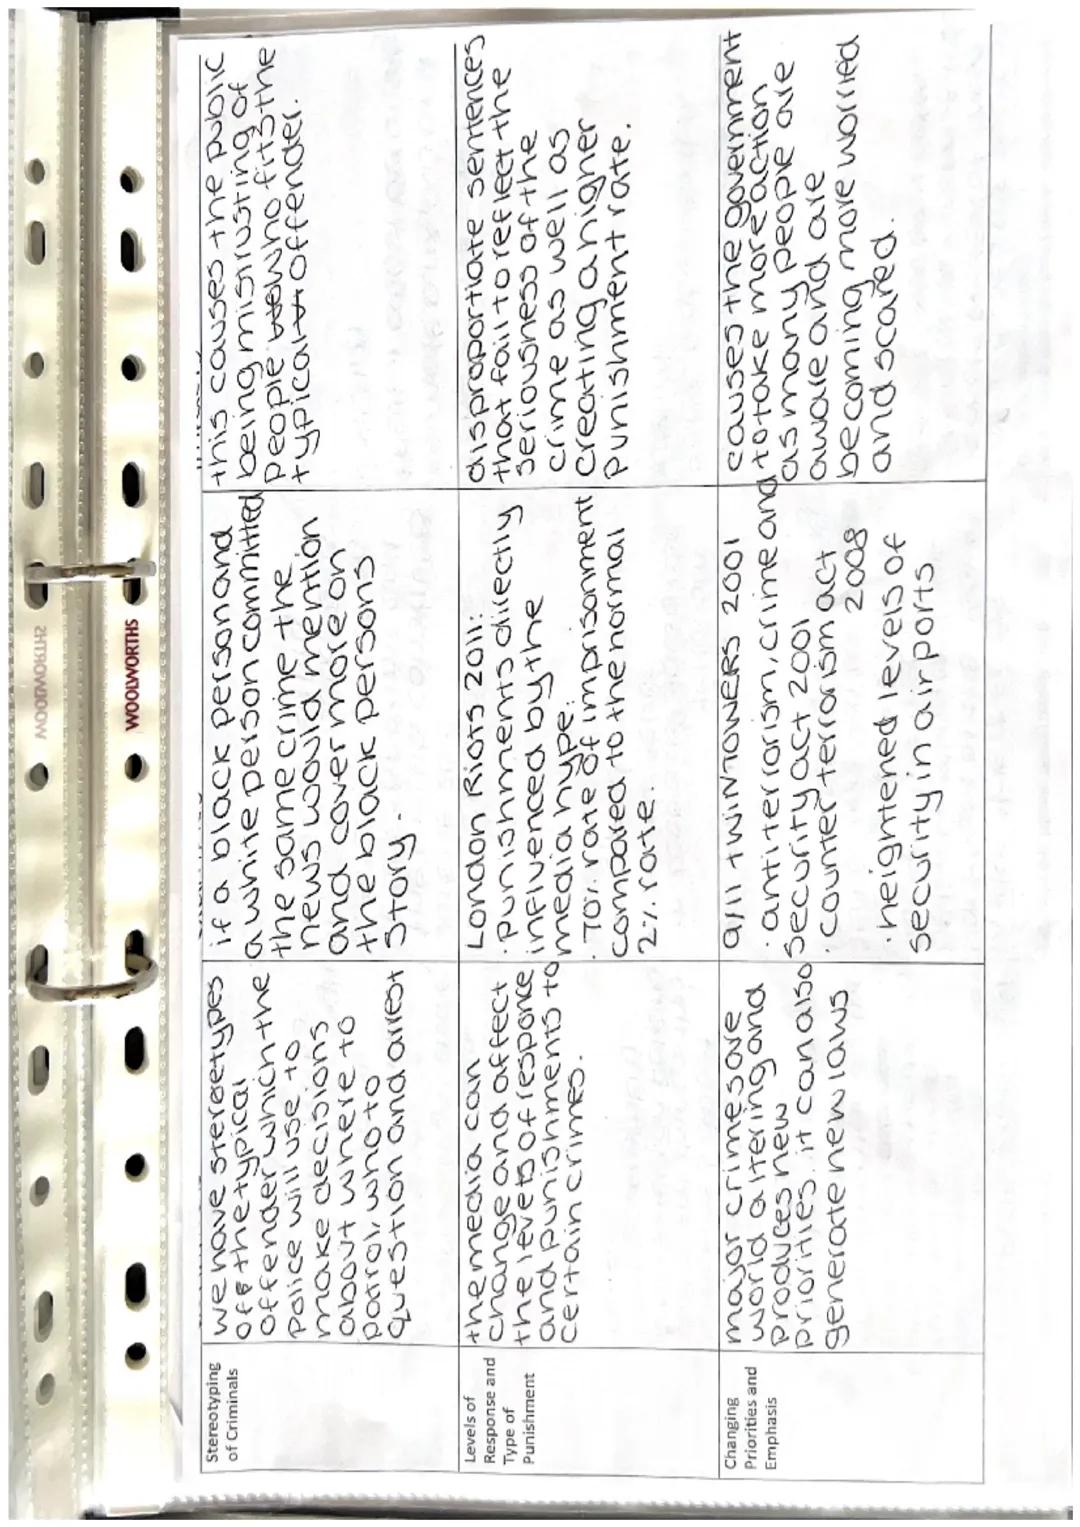 WOOLWORTHS
WOOLWORTHS
Stereotyping
of Criminals
we have stereotypes
off the typical
offender which the
police will use to
make decisions
about where to
patrol, who to
question and arrest
if a black person and
a white person committed
the same crime the
news would mention
and cover more on
the black persons
story.
this causes the public
being mistrusting of
people who fits the
typical offender.
Levels of
Response and
Type of
Punishment
the media can
change and affect
the levels of responce
and punishments to
certain crimes.
London Riots 2011:
· punishments directly
influenced by the
media hype.
· 70% rate of imprisonment
compared to the normal
2% rate.
disproportiate sentences
that fail to reflect the
seriousness of the
crime as well as
creating a higher
punishment rate.
Changing
Priorities and
Emphasis
major crimes are
world altering and
produces new
priorities. it can also
generate new laws
9/11 TWIN TOWERS 2001
· anti terrorism, crime and
security act 2001
· counter-terrorism act
2008
· heightened levels of
security in airports
causes the government
to take more action
as many people are
aware and are
becoming more worried
and scared.